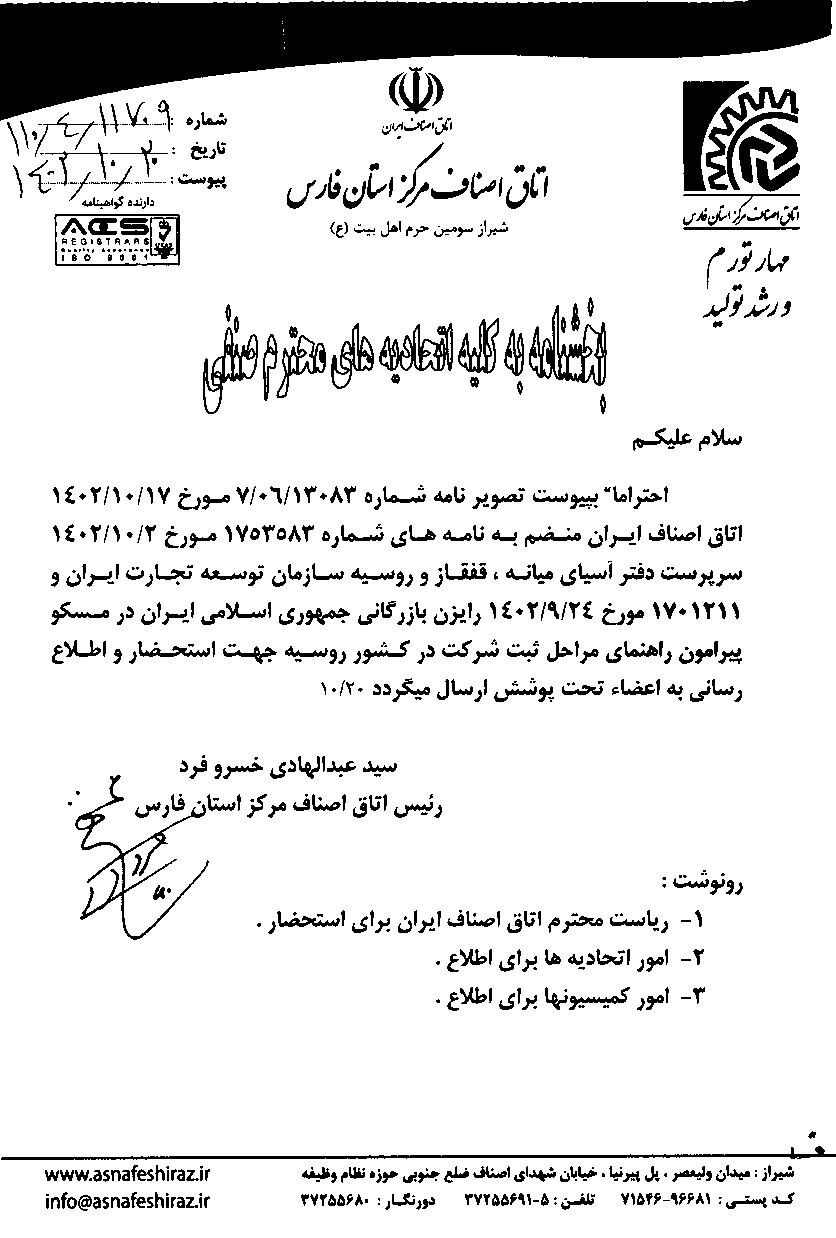 اتاق اصناف ایران
اتاق اصناف مرکز استان فارس
شیراز سومین حرم اهل بیت (ع)
شماره : ۱۱۰/۴/۱۱۷۰۹
تاریخ : ۱۴۰۲/۱۰/۲۰
پیوست :
دارنده گواهینامه
ACS
REGISTRARS
ISO 9001
اتاق اصناف مرکز استان فارس
مهار تورم
و رشد تولید
بخشنامه به کلیه اتحادیه های محترم صنفی
سلام علیکم
احتراما" بپیوست تصویر نامه شماره ۷/۰۶/۱۳۰۸۳ مورخ ۱۴۰۲/۱۰/۱۷
اتاق اصناف ایران منضم به نامه های شماره ۱۷۵۳۵۸۳ مورخ ۱۴۰۲/۱۰/۲
سرپرست دفتر آسیای میانه ، قفقاز و روسیه سازمان توسعه تجارت ایران و
۱۷۰۱۲۱۱ مورخ ۱۴۰۲/۹/۲۴ رایزن بازرگانی جمهوری اسلامی ایران در مسکو
پیرامون راهنمای مراحل ثبت شرکت در کشور روسیه جهت استحضار و اطلاع
رسانی به اعضاء تحت پوشش ارسال میگردد ۱۰/۲۰
سید عبدالهادی خسرو فرد
رئیس اتاق اصناف مرکز استان فارس
رونوشت :
۱- ریاست محترم اتاق اصناف ایران برای استحضار .
۲- امور اتحادیه ها برای اطلاع .
۳- امور کمیسیونها برای اطلاع .
شیراز : میدان ولیعصر ، پل پیرنیا ، خیابان شهدای اصناف ضلع جنوبی حوزه نظام وظیفه
کد پستی : ۷۱۵۴۶-۹۶۶۸۱ تلفن : ۵-۳۷۲۵۵۶۹۱ دورنگار : ۳۷۲۵۵۶۸۰
www.asnafeshiraz.ir
info@asnafeshiraz.ir